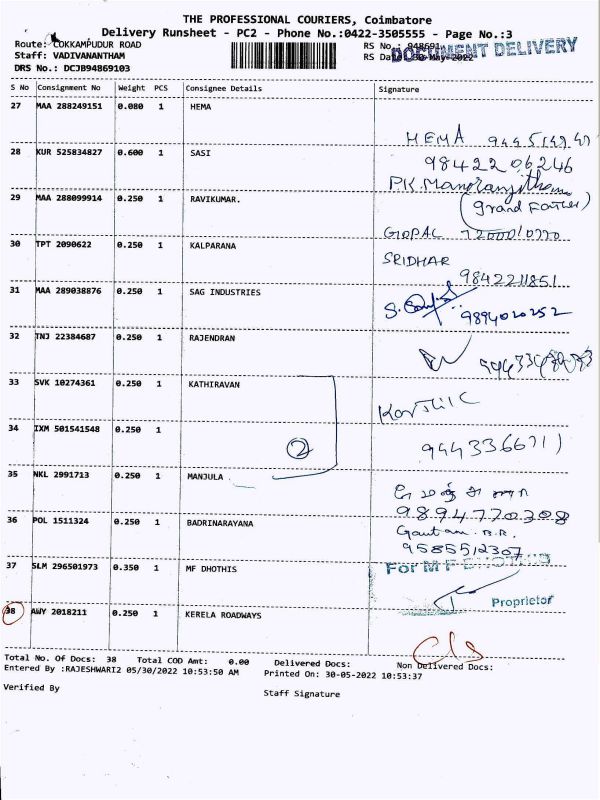 THE PROFESSIONAL COURIERS, Coimbatore
Delivery Runsheet - PC2 - Phone No.:0422-3505555 - Page No.:3
Route: COKKAMPUDUR ROAD
Staff: VADIVANANTHAM
DRS No.: DCJB94869103
RS No.: 948691
RS Date: 30-May-2022
DOCUMENT DELIVERY
S No Consignment No Weight PCS Consignee Details Signature
27 MAA 288249151 0.080 1 HEMA
HEMA
28 KUR 525834827 0.600 1 SASI
9842206246
PK.
(grand Father)
29 MAA 288099914 0.250 1 RAVIKUMAR.
GOPAL
30 TPT 2090622 0.250 1 KALPARANA
SRIDHAR
9842211851
31 MAA 289038876 0.250 1 SAG INDUSTRIES
9894020252
32 TNJ 22384687 0.250 1 RAJENDRAN
33 SVK 10274361 0.250 1 KATHIRAVAN
34 IXM 501541548 0.250 1
2
9443366711
35 NKL 2991713 0.250 1 MANJULA
9894770308
36 POL 1511324 0.250 1 BADRINARAYANA
Gautam. B.R.
9585512307
37 SLM 296501973 0.350 1 MF DHOTHIS
For M F DHOTHIS
Proprietor
38 AWY 2018211 0.250 1 KERELA ROADWAYS
Cls
Total No. Of Docs: 38 Total COD Amt: 0.00 Delivered Docs: Non Delivered Docs:
Entered By :RAJESHWARI2 05/30/2022 10:53:50 AM Printed On: 30-05-2022 10:53:37
Verified By Staff Signature